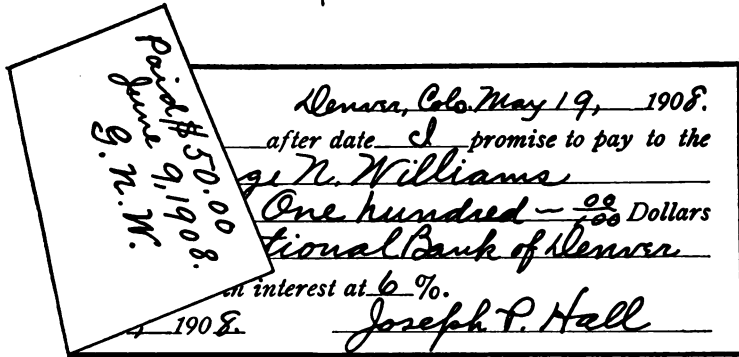 Paid $50.00
June 9, 1908.
G. N. W.
Denver, Colo. May 19, 1908.
after date I promise to pay to the
ge N. Williams
One hundred — 00/100 Dollars
tional Bank of Denver
interest at 6 %.
1908.
Joseph P. Hall